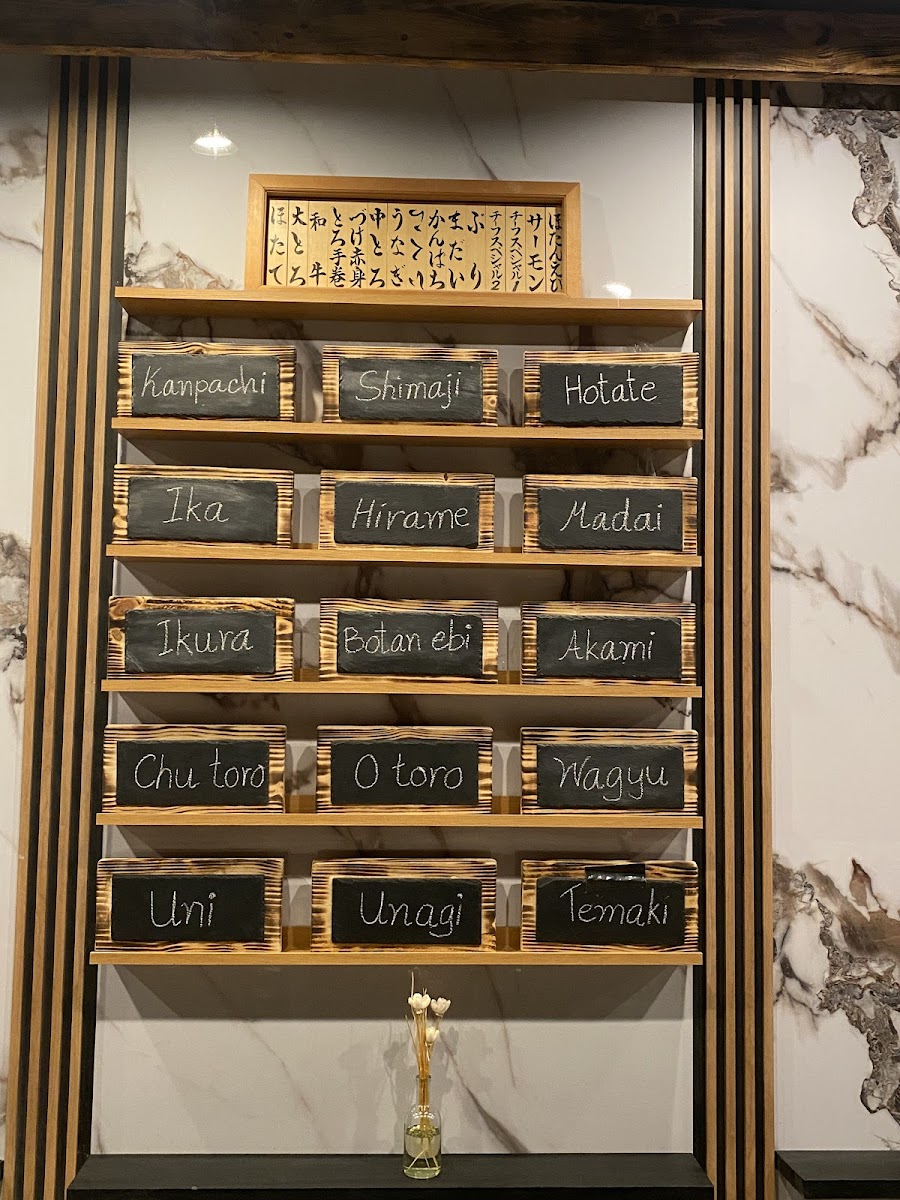 ほたんえび
サーモン
チーフスペシャル1
チーフスペシャル2
ぶり
まだい
かんぱち
うなぎ
中とろ
づけ赤身
とろ手巻
和牛
大とろ
ほたて
Kanpachi
Shimaji
Hotate
Ika
Hirame
Madai
Ikura
Botan ebi
Akami
Chu toro
O toro
Wagyu
Uni
Unagi
Temaki